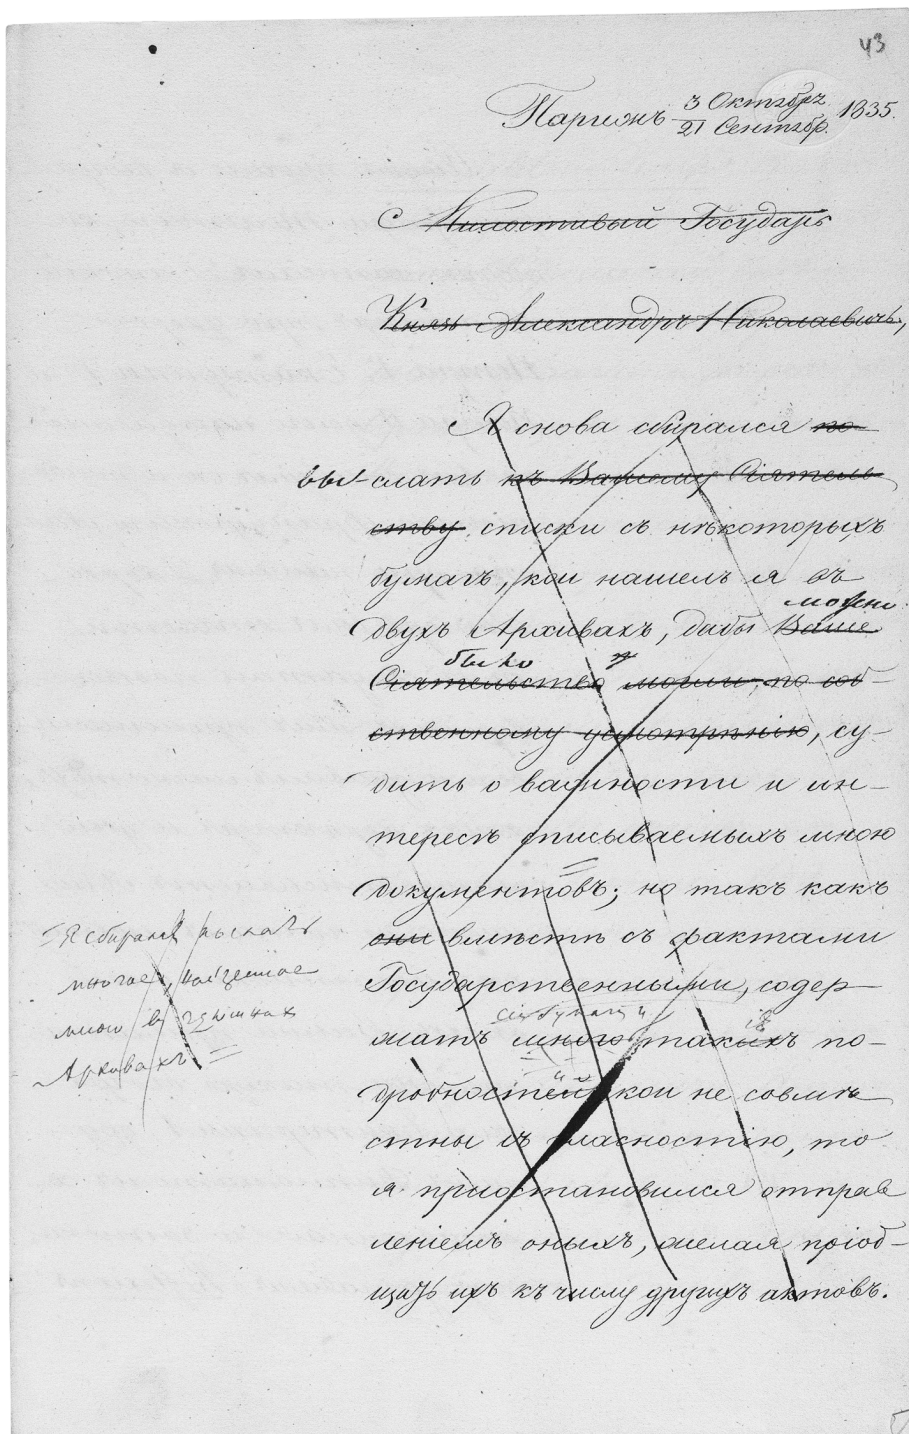 43
Парижъ 3 Октябрь / 21 Сентябр. 1835.
Милостивый Государь
Князь Александръ Николаевичь,
Я снова сбирался по
вы-слать къ Вашему Сіятель
ству списки съ нѣкоторыхъ
бумагъ, кои нашелъ я въ
можно
двухъ Архивахъ, дабы Ваше
было
Сіятельство могли, по соб-
ственному усмотрѣнію, су-
дить о важности и ин-
тересѣ списываемыхъ мною
документовъ; но такъ какъ
они вмѣстѣ съ фактами
Государственными, содер-
сіи бумаги
жатъ много такихъ по-
дробностей кои не совмѣ
стны съ гласностію, то
я пріостановился отправ
леніемъ оныхъ, желая пріоб-
щать ихъ къ числу другихъ актовъ.
= Я сбирался
многое, найденное
мною въ здешнихъ
Архивахъ =